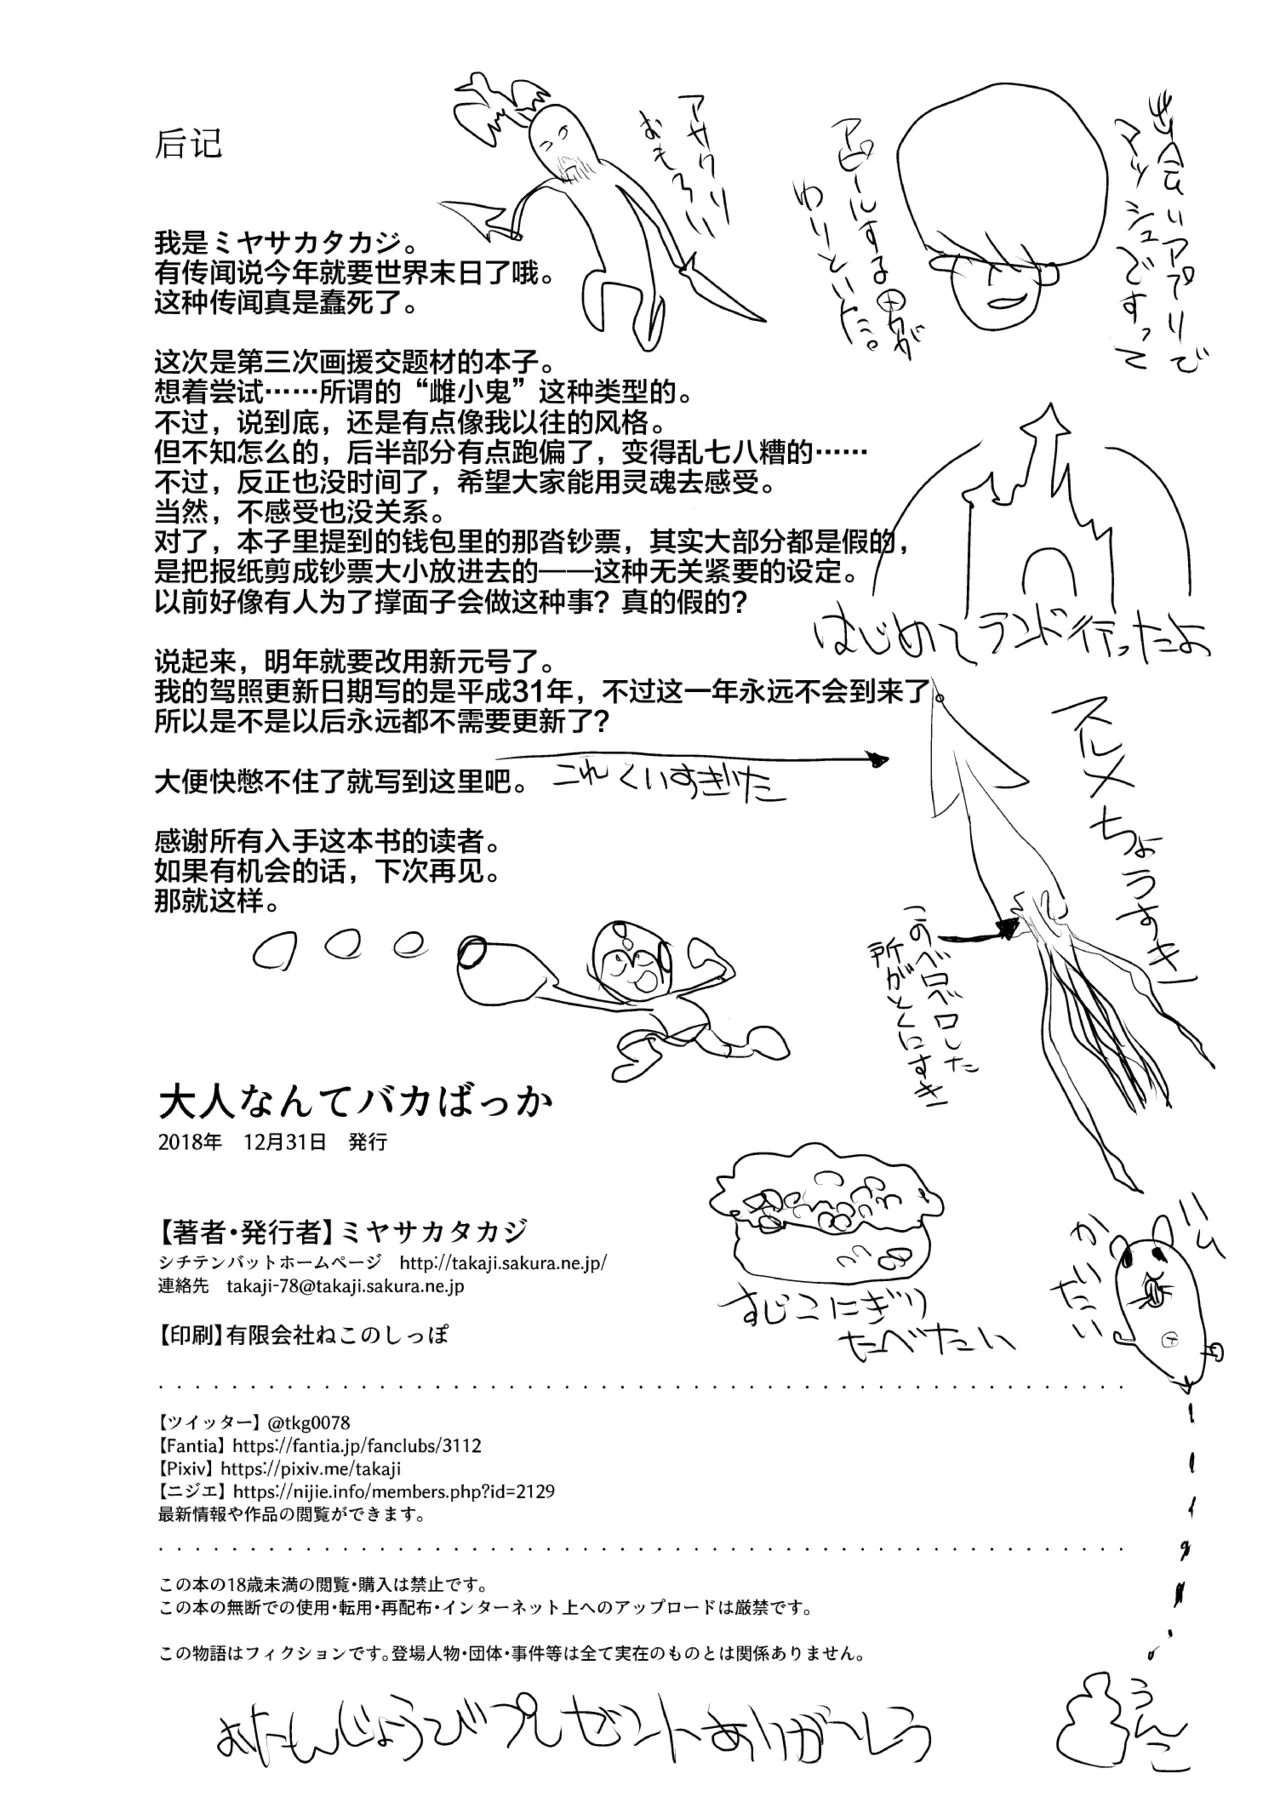 后记
アサクリ
おもろい
出会いアプリで
マッシュですって
アピールする男が
わりといた。
我是ミヤサカタカジ。
有传闻说今年就要世界末日了哦。
这种传闻真是蠢死了。
这次是第三次画援交题材的本子。
想着尝试……所谓的“雌小鬼”这种类型的。
不过，说到底，还是有点像我以往的风格。
但不知怎么的，后半部分有点跑偏了，变得乱七八糟的……
不过，反正也没时间了，希望大家能用灵魂去感受。
当然，不感受也没关系。
对了，本子里提到的钱包里的那沓钞票，其实大部分都是假的，
是把报纸剪成钞票大小放进去的——这种无关紧要的设定。
以前好像有人为了撑面子会做这种事？真的假的？
はじめてランド行ったよ
说起来，明年就要改用新元号了。
我的驾照更新日期写的是平成31年，不过这一年永远不会到来了。
所以是不是以后永远都不需要更新了？
大便快憋不住了就写到这里吧。
これくいすぎた
スルメちょうすき
感谢所有入手这本书的读者。
如果有机会的话，下次再见。
那就这样。
このベロベロした
所がとくにすき
大人なんてバカばっか
2018年　12月31日　発行
【著者・発行者】ミヤサカタカジ
シチテンバットホームページ　http://takaji.sakura.ne.jp/
連絡先　takaji-78@takaji.sakura.ne.jp
【印刷】有限会社ねこのしっぽ
すじこにぎり
たべたい
ハム
かいたい
【ツイッター】@tkg0078
【Fantia】https://fantia.jp/fanclubs/3112
【Pixiv】https://pixiv.me/takaji
【ニジエ】https://nijie.info/members.php?id=2129
最新情報や作品の閲覧ができます。
この本の18歳未満の閲覧・購入は禁止です。
この本の無断での使用・転用・再配布・インターネット上へのアップロードは厳禁です。
この物語はフィクションです。登場人物・団体・事件等は全て実在のものとは関係ありません。
うんこ
おたんじょうびプレゼントありがとう